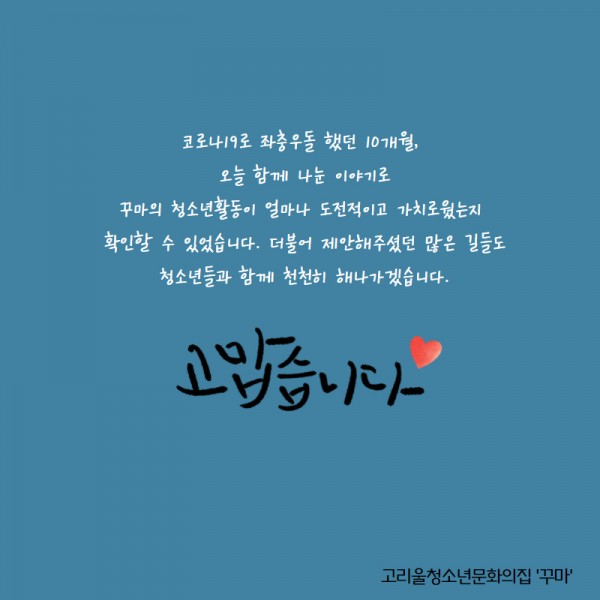 코로나19로 좌충우돌 했던 10개월,
오늘 함께 나눈 이야기로
꾸마의 청소년활동이 얼마나 도전적이고 가치로웠는지
확인할 수 있었습니다. 더불어 제안해주셨던 많은 길들도
청소년들과 함께 천천히 해나가겠습니다.
고맙습니다
고리울청소년문화의집 '꾸마'